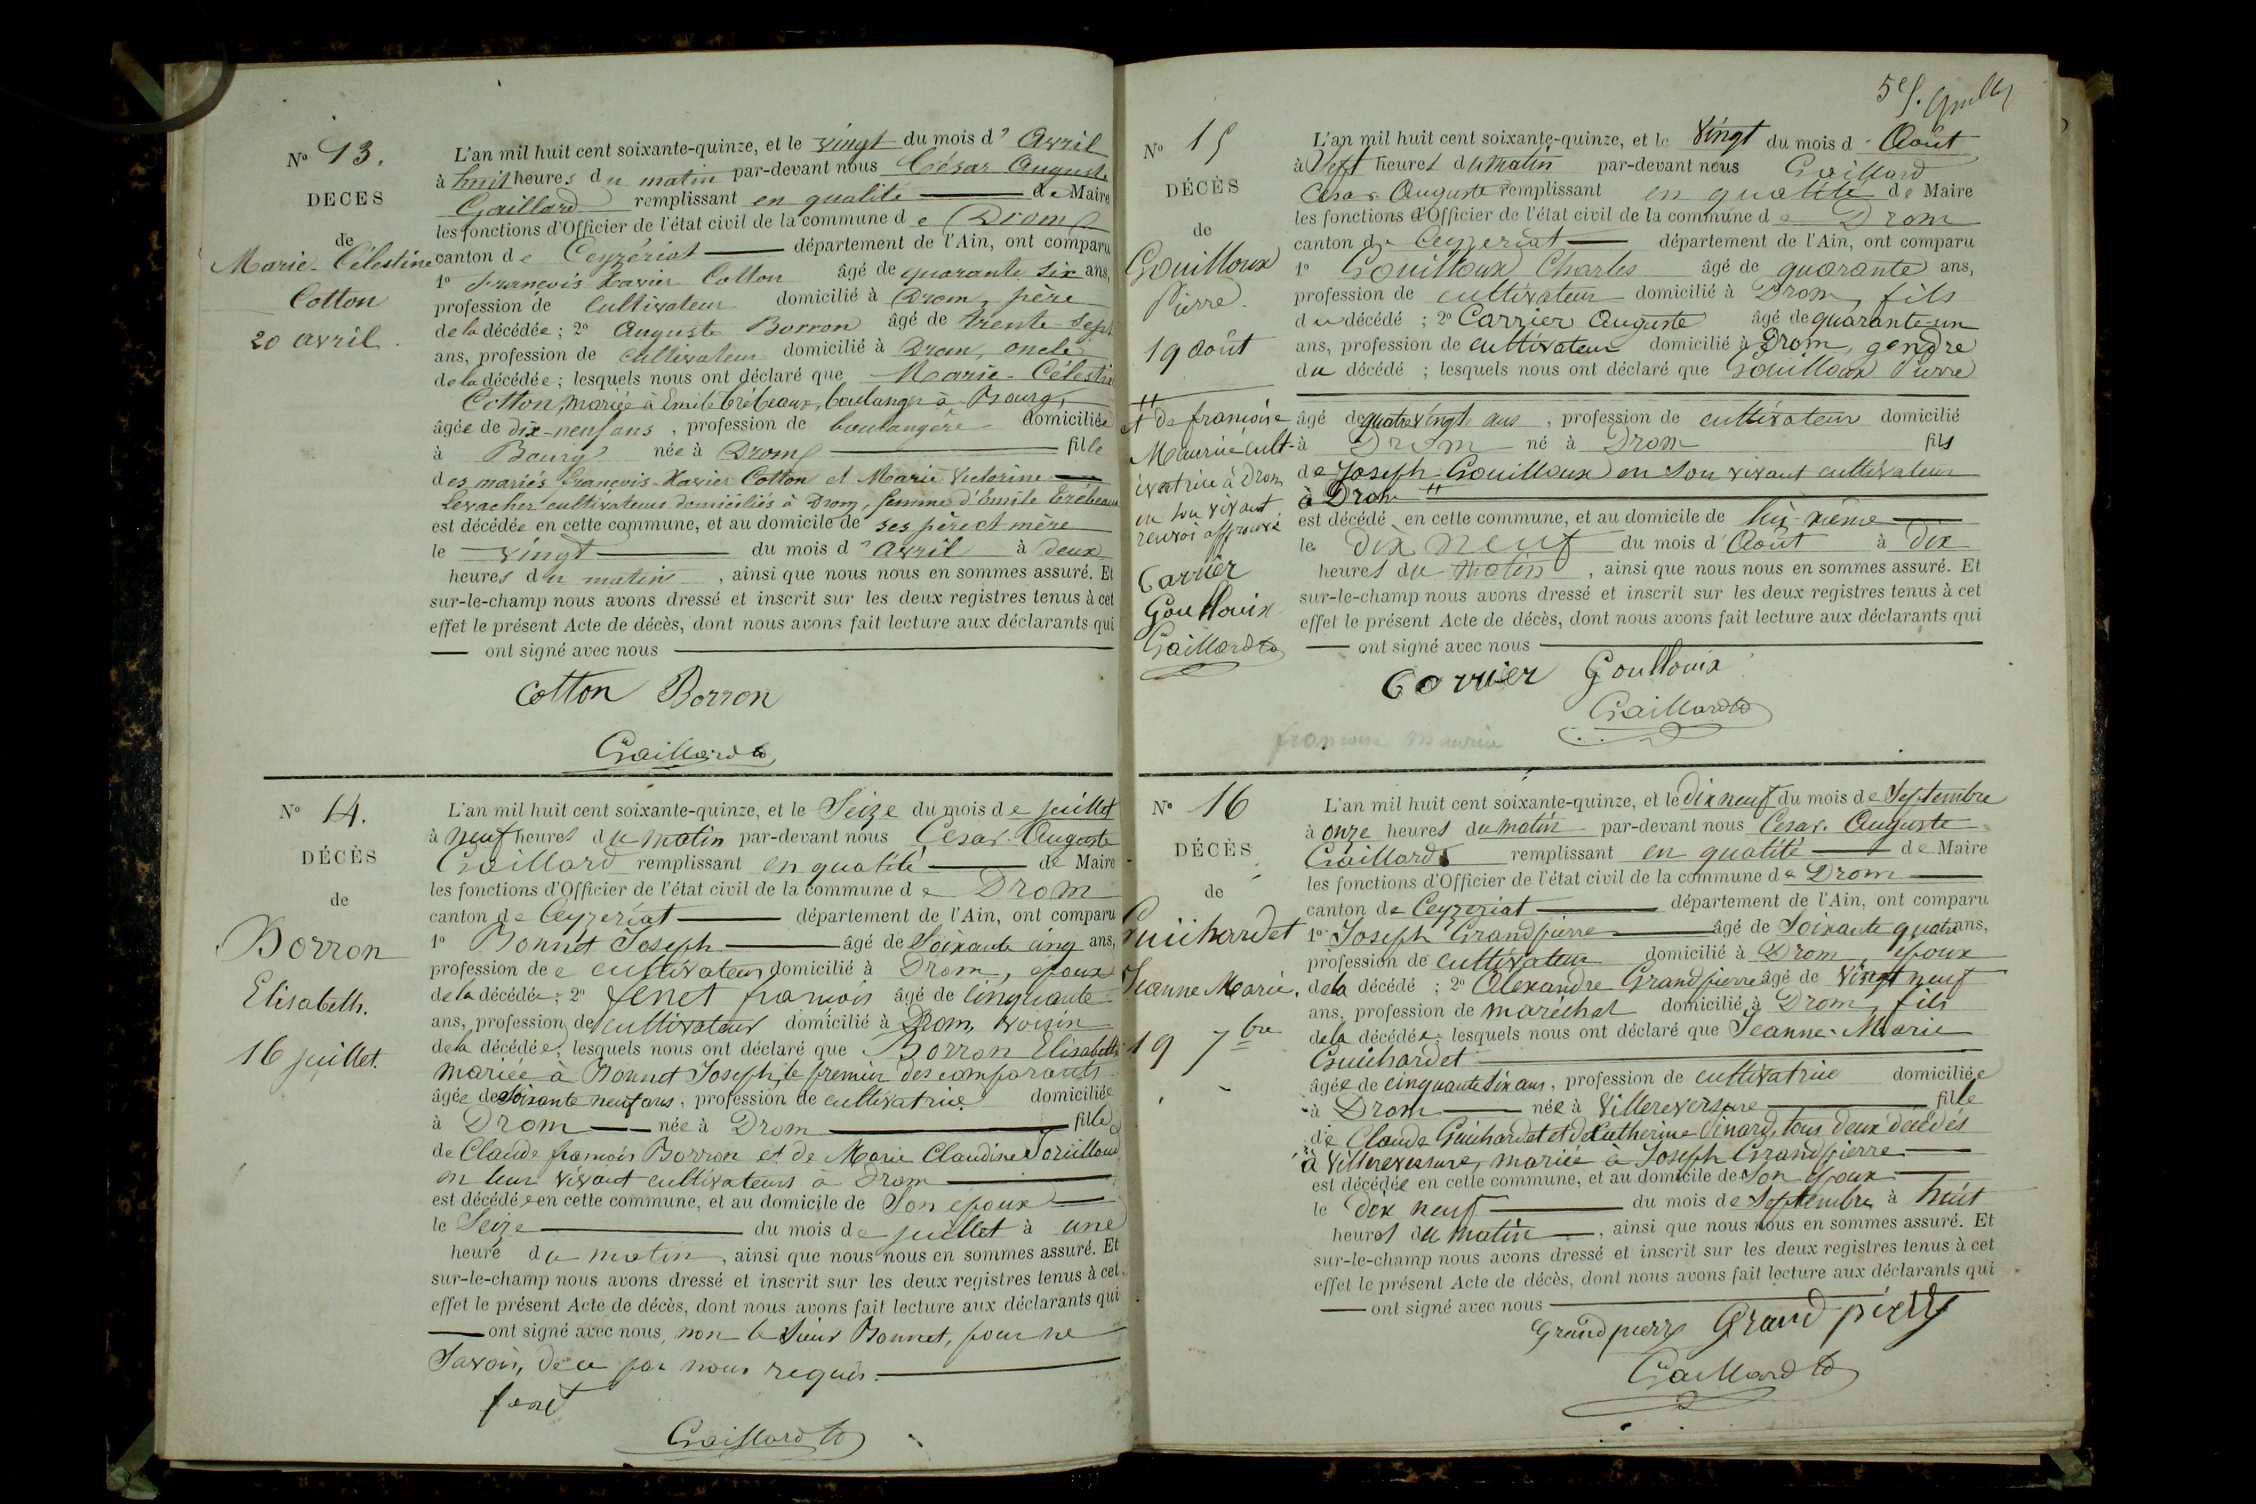 N° 13.
DECES
de
Marie-Célestine
Cotton
20 avril.
L'an mil huit cent soixante-quinze, et le vingt du mois d'Avril
à huit heures du matin par-devant nous César Auguste
Gaillard remplissant en qualité de Maire
les fonctions d'Officier de l'état civil de la commune de Drom
canton de Ceyzériat département de l'Ain, ont comparu
1° François Xavier Cotton âgé de quarante six ans,
profession de cultivateur domicilié à Drom, père
de la décédée ; 2° Auguste Borron âgé de trente-sept
ans, profession de cultivateur domicilié à Drom, oncle
de la décédée ; lesquels nous ont déclaré que Marie-Célestine
Cotton, mariée à Emile Trébeaux, boulanger à Bourg,
âgée de dix-neuf ans, profession de boulangère domiciliée
à Bourg née à Drom fille
des mariés François-Xavier Cotton et Marie Victorine
Levacher cultivateurs domiciliés à Drom, femme d'Emile Trébeaux
est décédée en cette commune, et au domicile de ses père et mère
le vingt du mois d'avril à deux
heures du matin, ainsi que nous nous en sommes assuré. Et
sur-le-champ nous avons dressé et inscrit sur les deux registres tenus à cet
effet le présent Acte de décès, dont nous avons fait lecture aux déclarants qui
ont signé avec nous
Cotton Borron
Gaillard
N° 14.
DÉCÈS
de
Borron
Elisabeth.
16 juillet.
L'an mil huit cent soixante-quinze, et le Seize du mois de juillet
à neuf heures du matin par-devant nous Cesar-Auguste
Gaillard remplissant en qualité de Maire
les fonctions d'Officier de l'état civil de la commune de Drom
canton de Ceyzeriat département de l'Ain, ont comparu
1° Bonnet Joseph âgé de Soixante cinq ans,
profession de cultivateur domicilié à Drom, époux
de la décédée ; 2° fenet françois âgé de cinquante
ans, profession de cultivateur domicilié à Drom, voisin
de la décédée, lesquels nous ont déclaré que Borron Elisabeth
mariée à Bonnet Joseph, le premier des comparants
âgée de soixante neuf ans, profession de cultivatrice domiciliée
à Drom née à Drom fille
de Claude françois Borron et de Marie Claudine
en leur vivant cultivateurs à Drom
est décédée en cette commune, et au domicile de Son époux
le Seize du mois de juillet à une
heure du matin, ainsi que nous nous en sommes assuré. Et
sur-le-champ nous avons dressé et inscrit sur les deux registres tenus à cet
effet le présent Acte de décès, dont nous avons fait lecture aux déclarants qui
ont signé avec nous, non le Sieur Bonnet, pour ne
Savoir, de ce par nous requis.
fenet
Gaillard
5e f.
N° 15
DÉCÈS
de
Gouilloux
Pierre.
19 août
et de françoise
Maurice cult-
ivatrice à Drom
en son vivant
renvoi approuvé
Carrier
Goullouix
Gaillard
L'an mil huit cent soixante-quinze, et le Vingt du mois d'Août
à Sept heures du matin par-devant nous Gaillard
Cesar-Auguste remplissant en qualité de Maire
les fonctions d'Officier de l'état civil de la commune de Drom
canton de Ceyzeriat département de l'Ain, ont comparu
1° Gouilloux Charles âgé de quarante ans,
profession de cultivateur domicilié à Drom, fils
du décédé ; 2° Carrier Auguste âgé de quarante-un
ans, profession de cultivateur domicilié à Drom, gendre
du décédé ; lesquels nous ont déclaré que Gouilloux Pierre
âgé de quatre vingt ans, profession de cultivateur domicilié
à Drom né à Drom fils
de Joseph Gouilloux en Son vivant cultivateur
à Drom
est décédé en cette commune, et au domicile de lui-même
le dix neuf du mois d'Août à dix
heures du matin, ainsi que nous nous en sommes assuré. Et
sur-le-champ nous avons dressé et inscrit sur les deux registres tenus à cet
effet le présent Acte de décès, dont nous avons fait lecture aux déclarants qui
ont signé avec nous
Carrier Goullouix
Gaillard
françoise Maurice
N° 16
DÉCÈS
de
Guichardet
Jeanne Marie.
19 7bre
L'an mil huit cent soixante-quinze, et le dix neuf du mois de Septembre
à onze heures du matin par-devant nous Cesar-Auguste
Gaillard remplissant en qualité de Maire
les fonctions d'Officier de l'état civil de la commune de Drom
canton de Ceyzeriat département de l'Ain, ont comparu
1° Joseph Grandpierre âgé de Soixante quatre ans,
profession de cultivateur domicilié à Drom, époux
de la décédé ; 2° Alexandre Grandpierre âgé de vingt neuf
ans, profession de maréchal domicilié à Drom, fils
de la décédée ; lesquels nous ont déclaré que Jeanne-Marie
Guichardet
âgée de cinquante six ans, profession de cultivatrice domiciliée
à Drom née à Villereversure fille
de Claude Guichardet et de Catherine Vinard, tous deux décédés
à Villereversure, mariée à Joseph Grandpierre
est décédée en cette commune, et au domicile de Son époux
le dix neuf du mois de Septembre à huit
heures du matin, ainsi que nous nous en sommes assuré. Et
sur-le-champ nous avons dressé et inscrit sur les deux registres tenus à cet
effet le présent Acte de décès, dont nous avons fait lecture aux déclarants qui
ont signé avec nous
Grandpierre Grandpierre
Gaillard